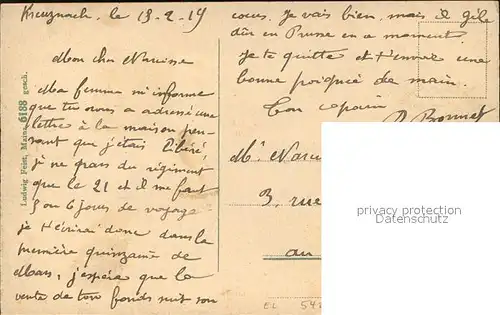 Kreuznach, le 13-2-19
Mon cher Narcisse
Ma femme m'informe
que tu nous a adressé une
lettre à la maison pen-
sant que j'étais libéré,
je ne pars du régiment
que le 21 et il me faut
5 ou 6 jours de voyage
je t'écrirai donc dans la
première quinzaine de
Mars, j'espère que la
vente de ton fonds suit son
cours, je vais bien, mais il gèle
dûr en Prusse en ce moment
Je te quitte et t'envoie une
bonne poignée de main.
Ton copain
Bonnet
Mr Narci
3, rue
au
Ludwig Feist, Mainz 6188 gesch.
privacy protection
Datenschutz
EL